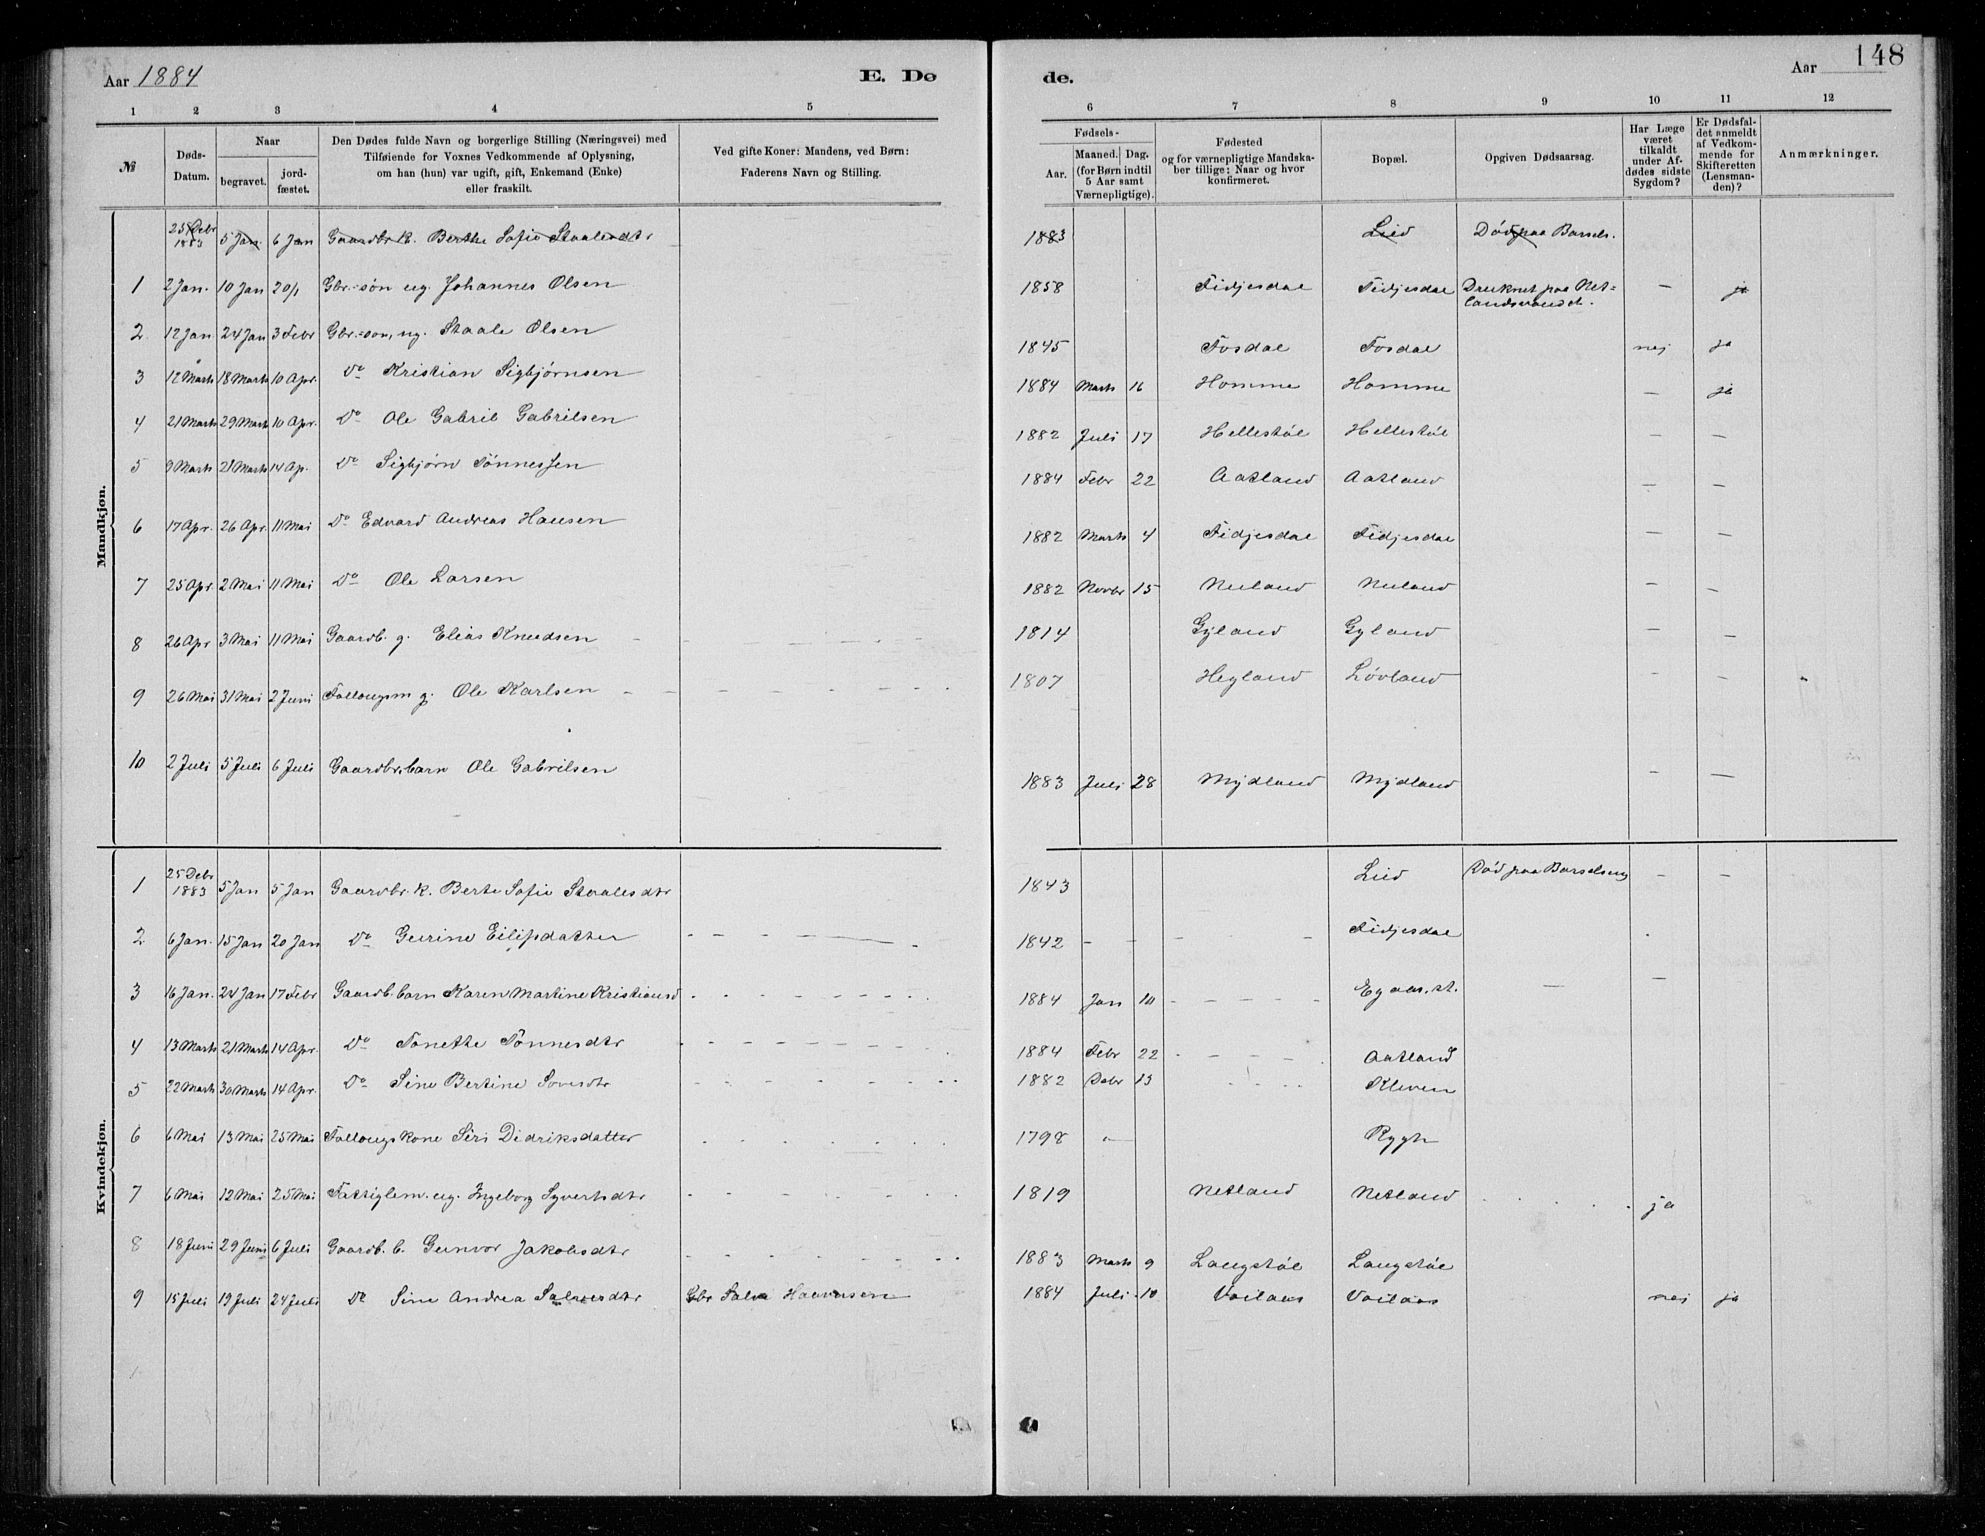 Aar 1884
E. Dø
de.
Aar
148
1 2 3 4 5
6 7 8 9 10 11 12
№
Døds-Datum.
Naar
begravet.
jordfæstet.
Den Dødes fulde Navn og borgerlige Stilling (Næringsvei) med
Tilføiende for Voxnes Vedkommende af Oplysning,
om han (hun) var ugift, gift, Enkemand (Enke)
eller fraskilt.
Ved gifte Koner: Mandens, ved Børn:
Faderens Navn og Stilling.
Fødsels-
Aar.
Maaned. Dag.
(for Børn indtil
5 Aar samt
Værnepligtige).
Fødested
og for værnepligtige Mandska-
ber tillige: Naar og hvor
konfirmeret.
Bopæl.
Opgiven Dødsaarsag.
Har Læge
været
tilkaldt
under Af-
dødes sidste
Sygdom?
Er Dødsfal-
det anmeldt
af Vedkom-
mende for
Skifteretten
(Lensman-
den)?
Anmærkninger.
Mandkjøn.
25 Debr 1883 5 Jan. 6 Jan Gaardbr. k. Berthe Sofie Staalesdtr 1883 Lied Død paa Barsels.
1 2 Jan. 10 Jan 20/1 Gbr.-søn ug. Johannes Olsen 1858 Fidjesdal Fidjesdal Druknet paa Net-
landsvandet. — ja
2 12 Jan 24 Jan 3 Febr Gbr.-søn, ug. Staale Olsen 1845 Fosdal Fosdal nej ja
3 12 Marts 18 Marts 10 Apr. Do Kristian Sigbjørnsen 1884 Marts 16 Homme Homme — ja
4 21 Marts 29 Marts 10 Apr. Do Ole Gabriel Gabrilsen 1882 Juli 17 Hellestøl Hellestøl — —
5 9 Marts 21 Marts 14 Ap. Do Sigbjørn Tønnessen 1884 Febr 22 Aatland Aatland — —
6 17 Apr. 26 Apr. 11 Mai Do Edvard Andreas Hansen 1882 Marts 4 Fidjesdal Fidjesdal — —
7 25 Apr. 2 Mai 11 Mai Do Ole Larsen 1882 Novbr 15 Nuland Nuland — —
8 26 Apr 3 Mai 11 Mai Gaardb. g. Elias Knudsen 1814 Gyland Gyland — —
9 26 Mai 31 Mai 2 Juni Follougsm g. Ole Karlsen 1807 Hegland Løvland — —
10 2 Juli 5 Juli 6 Juli Gaardbr.barn Ole Gabrilsen 1883 Juli 28 Mydland Mydland — —
Kvindekjøn.
1 25 Debr 1883 5 Jan 5 Jan Gaardbr. k. Berte Sofie Staalesdtr 1843 Lied Død paa Barselseng — —
2 6 Jan. 15 Jan 20 Jan Do Gurine Eilifsdatter 1842 Fidjesdal
3 16 Jan. 24 Jan 17 Febr Gaardb. barn Karen Martine Kristiansd 1884 Jan 10 Egaas. st. — —
4 13 Marts 21 Marts 14 Apr. Do Tonette Tønnesdtr 1884 Febr 22 Aatland
5 22 Marts 30 Marts 14 Apr. Do Sine Bertine 1882 Debr 13 Kleven
6 6 Mai 13 Mai 25 Mai Follougskone Siri Didriksdatter 1798 Rygh
7 6 Mai 12 Mai 25 Mai Fattiglem. ug. Ingeborg Syvertsdtr 1819 Netland Netland ja
8 18 Juni 29 Juni 6 Juli Gaardb. b. Gunvor Jakobsdtr 1883 Marts 9 Langstøl Langstøl
9 15 Juli 19 Juli 24 Juli Do Sine Andrea Salvesdtr Gbr Salve Haavorsen 1884 Juli 10 Voilaas Voilaas nej ja